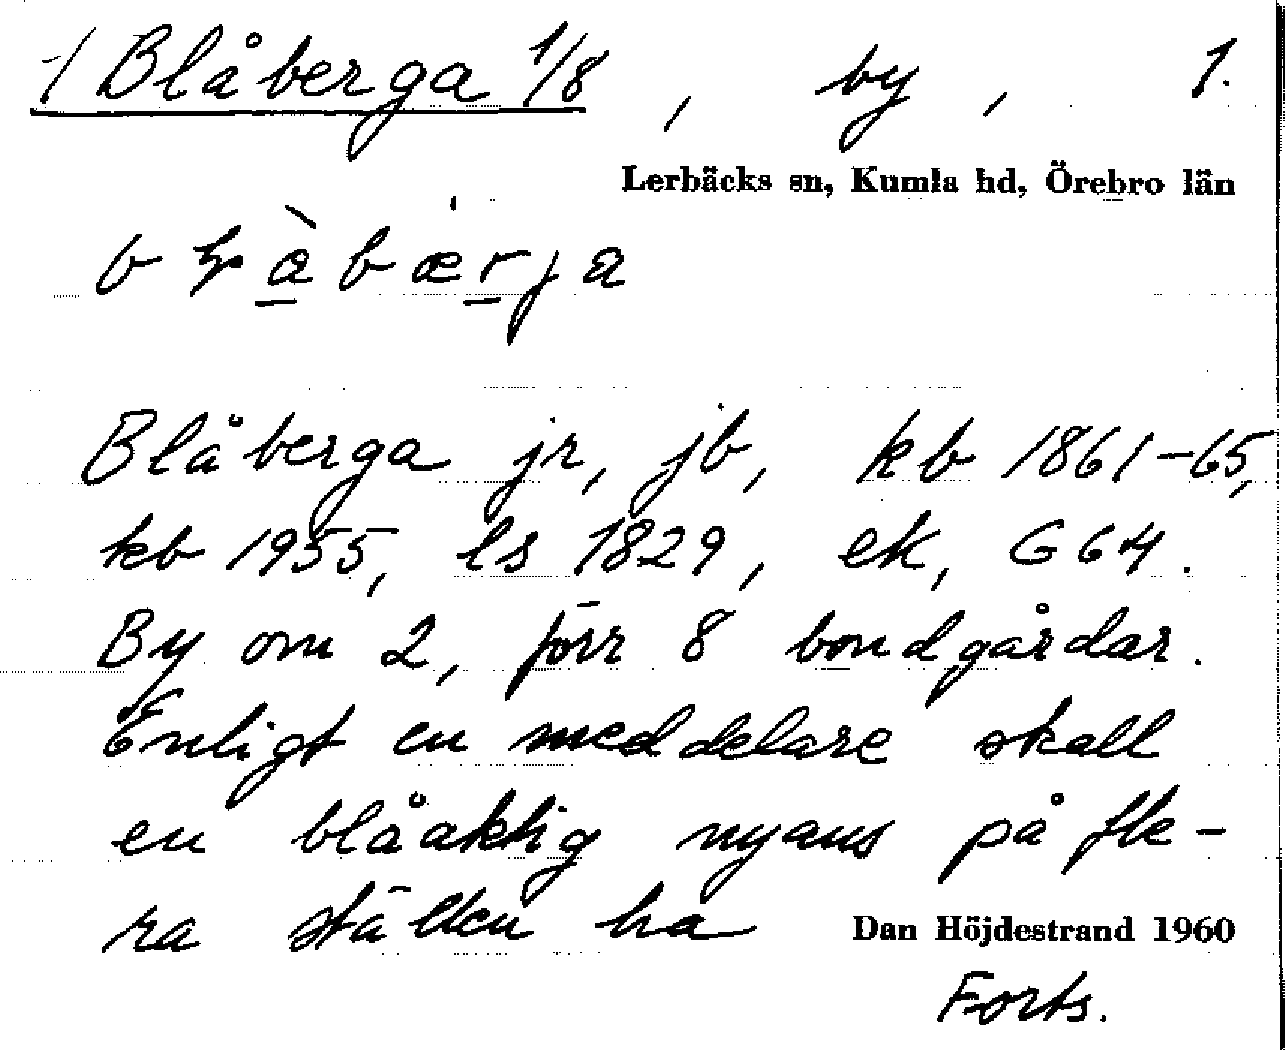 1/ Blåberga 1/8, by, 1.
Lerbäcks sn, Kumla hd, Örebro län
Blåberga jr, jb, kb 1861-65,
kb 1955, ls 1829, ek, G64.
By om 2, förr 8 bondgårdar.
Enligt en meddelare skall
en blåaktig nyans på fle-
ra ställen ha
Dan Höjdestrand 1960
Forts.